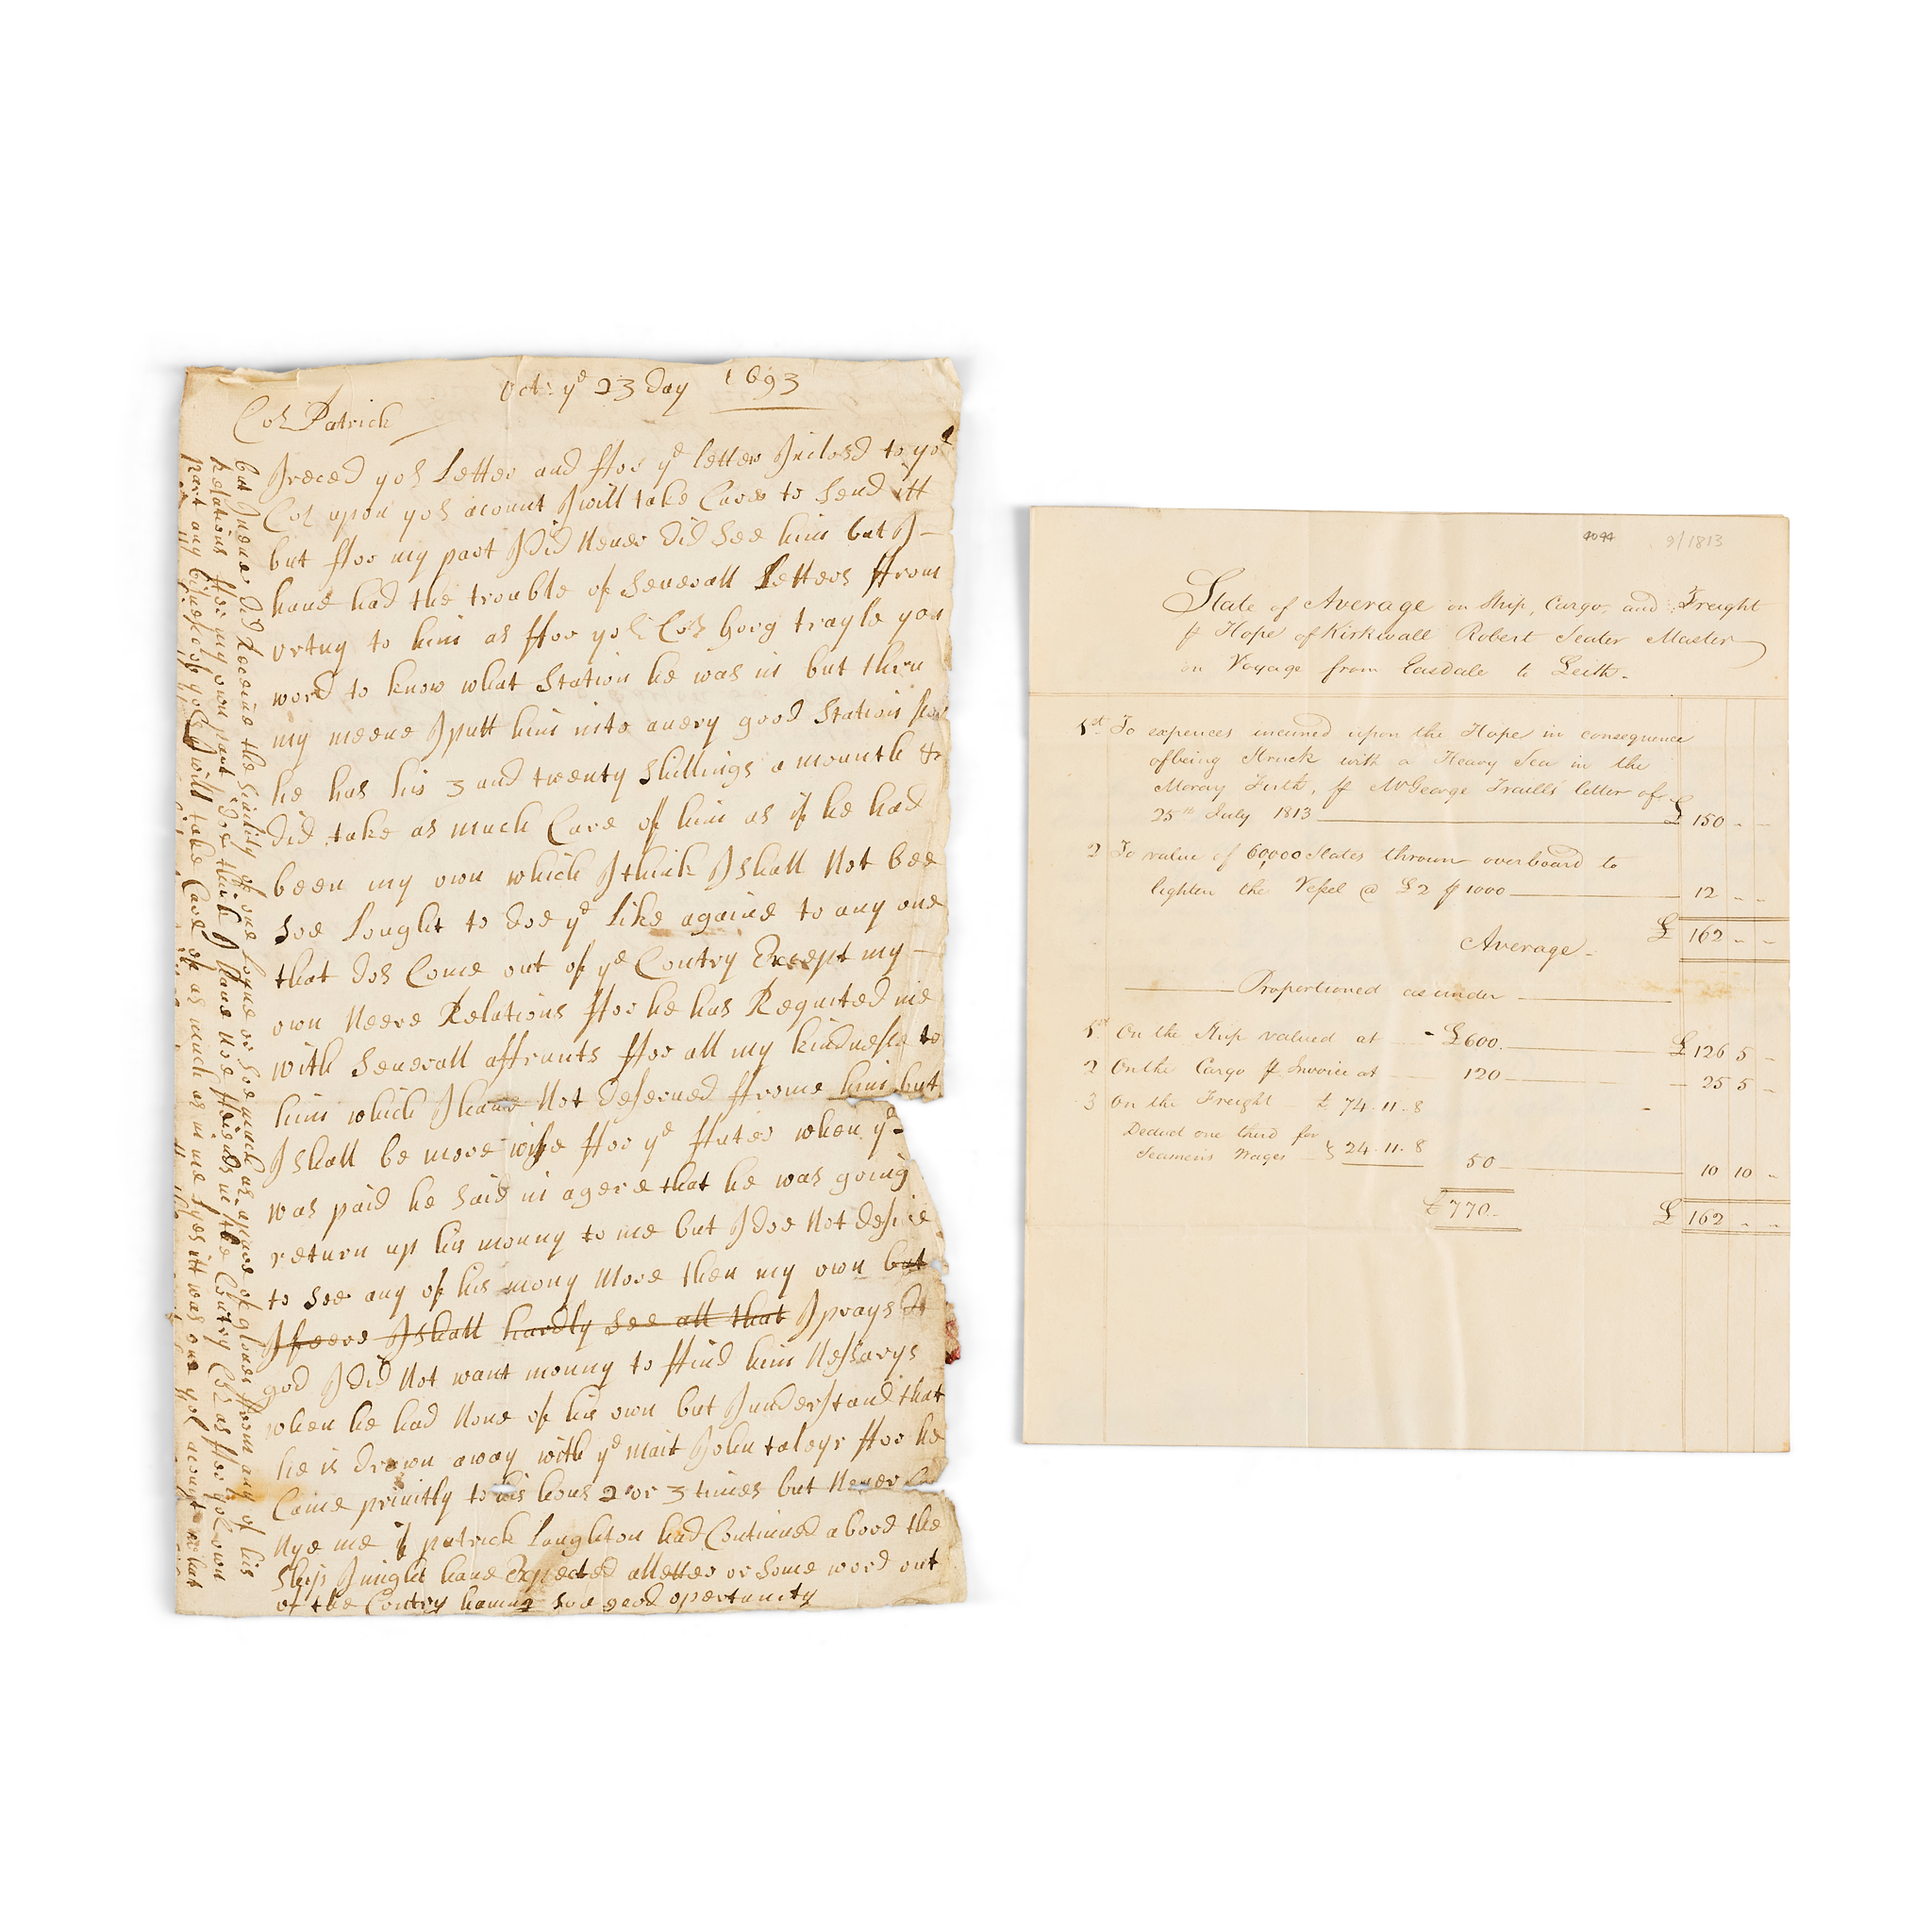 Oct: yᵉ 23 Day 1693
Coz Patrick
I reced yoʳ Letter and ffor yᵉ letter Inclosd to yoʳ
Coz upon yoʳ acount I will take Care to Send itt
but ffor my part I did Never did See him but I –
have had the trouble of Severall Letters ffrom
to him as ffor yoʳ Coz Gorg trayle you
word to know what Station he was in but thru
my meene I putt him into a very good Station for
he has his 3 and twenty Shillings a mounth &
did take as much Care of him as if he had
been my own which I think I shall Not bee
Soe Lought to doe yᵉ like againe to any one
that dos Come out of yᵉ Contry Except my –
own Neere Relations ffor he has Requited me
with Severall affrunts ffor all my kindnesse to
him which I have Not deserved ffrome him but
I shall be more wise ffor yᵉ ffuter when yᵉ
was paid he Said in agere that he was going
return up his mouny to me but I doe Not desire
to See any of his mony More then my own but
I feere I shall hardly See all that I prayse
god I did Not want mouny to ffind him Nessarys
when he had None of his own but I understand that
he is drawn away with yᵉ mait John taleyr ffor he
Came privitly to his hous 2 or 3 times but Never
Nye me if patrick Loughton had Continued abord the
Ship I might have Expected a letter or Some word out
of the Contry having Soe good opertunity
but I never did Receive the Sivility of one Logne or Soe much as a paire of gloves ffrom any of his
Relations ffor my own part I doe think I have Noe ffriends in the Contry Coz as ffor yoʳ own
part any bisnes of yoʳˢ I will take Care of as much as in me Lyes itt was one yoʳ acount what
4094 9/1813
State of Average on Ship, Cargo, and Freight
⅌ Hope of Kirkwall Robert Seater Master
on Voyage from Easdale to Leith.
1ˢᵗ To expences incurred upon the Hope in consequence
of being Struck with a Heavy Sea in the
Moray Firth, ⅌ Mʳ George Traill's letter of
25ᵗʰ July 1813 £ 150 - -
2 To value of 60,000 Slates thrown overboard to
lighten the Vessel @ £2 ⅌ 1000 12 - -
Average - £ 162 - -
Proportioned as under
1ˢᵗ On the Ship valued at - £600. £ 126 5 -
2 On the Cargo ⅌ Invoice at 120 25 5 -
3 On the Freight £ 74.11.8
Deduct one third for
Seamen's Wages 24.11.8 50 10 10 -
£ 770.- £ 162 - -